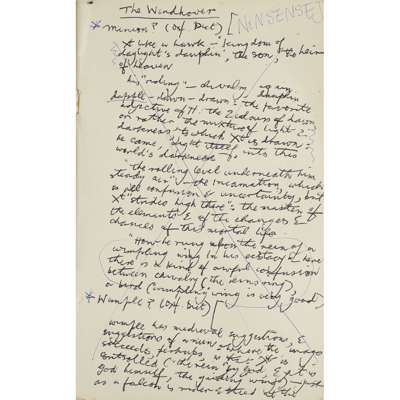 The Windhover
* Minion? (Ox. Dict) [NONSENSE]
Xt like a hawk — "kingdom of
daylight's dauphin", the son, the heir
of heaven
his "riding" — chivalry, dauphin
dapple — dawn — drawn: the favorite
adjective of H. the 2 colours of dawn
or rather the mixture of light &
darkness to which Xt is drawn:
he came, light itself into this
world's darkness
"the rolling level underneath him
steady air" — the Incarnation, which
is all confusion & uncertainty, but
Xt "strides high there": the master of
the elements & of the changes &
chances of this mortal life.
"How he rung upon the rein of a
wimpling wing in his ecstasy" — here
there is a kind of awful confusion
between chivalry (the rein, rung)
a bird (wimpling wing is very good)
* Wimple? (Ox. Dict)
wimple has medieval suggestion, &
suggestions of a nun where the image
succeeds perhaps, is that Xt is
controlled (the rein) by God, & yet is
God himself, the guiding wing)
as a falcon is